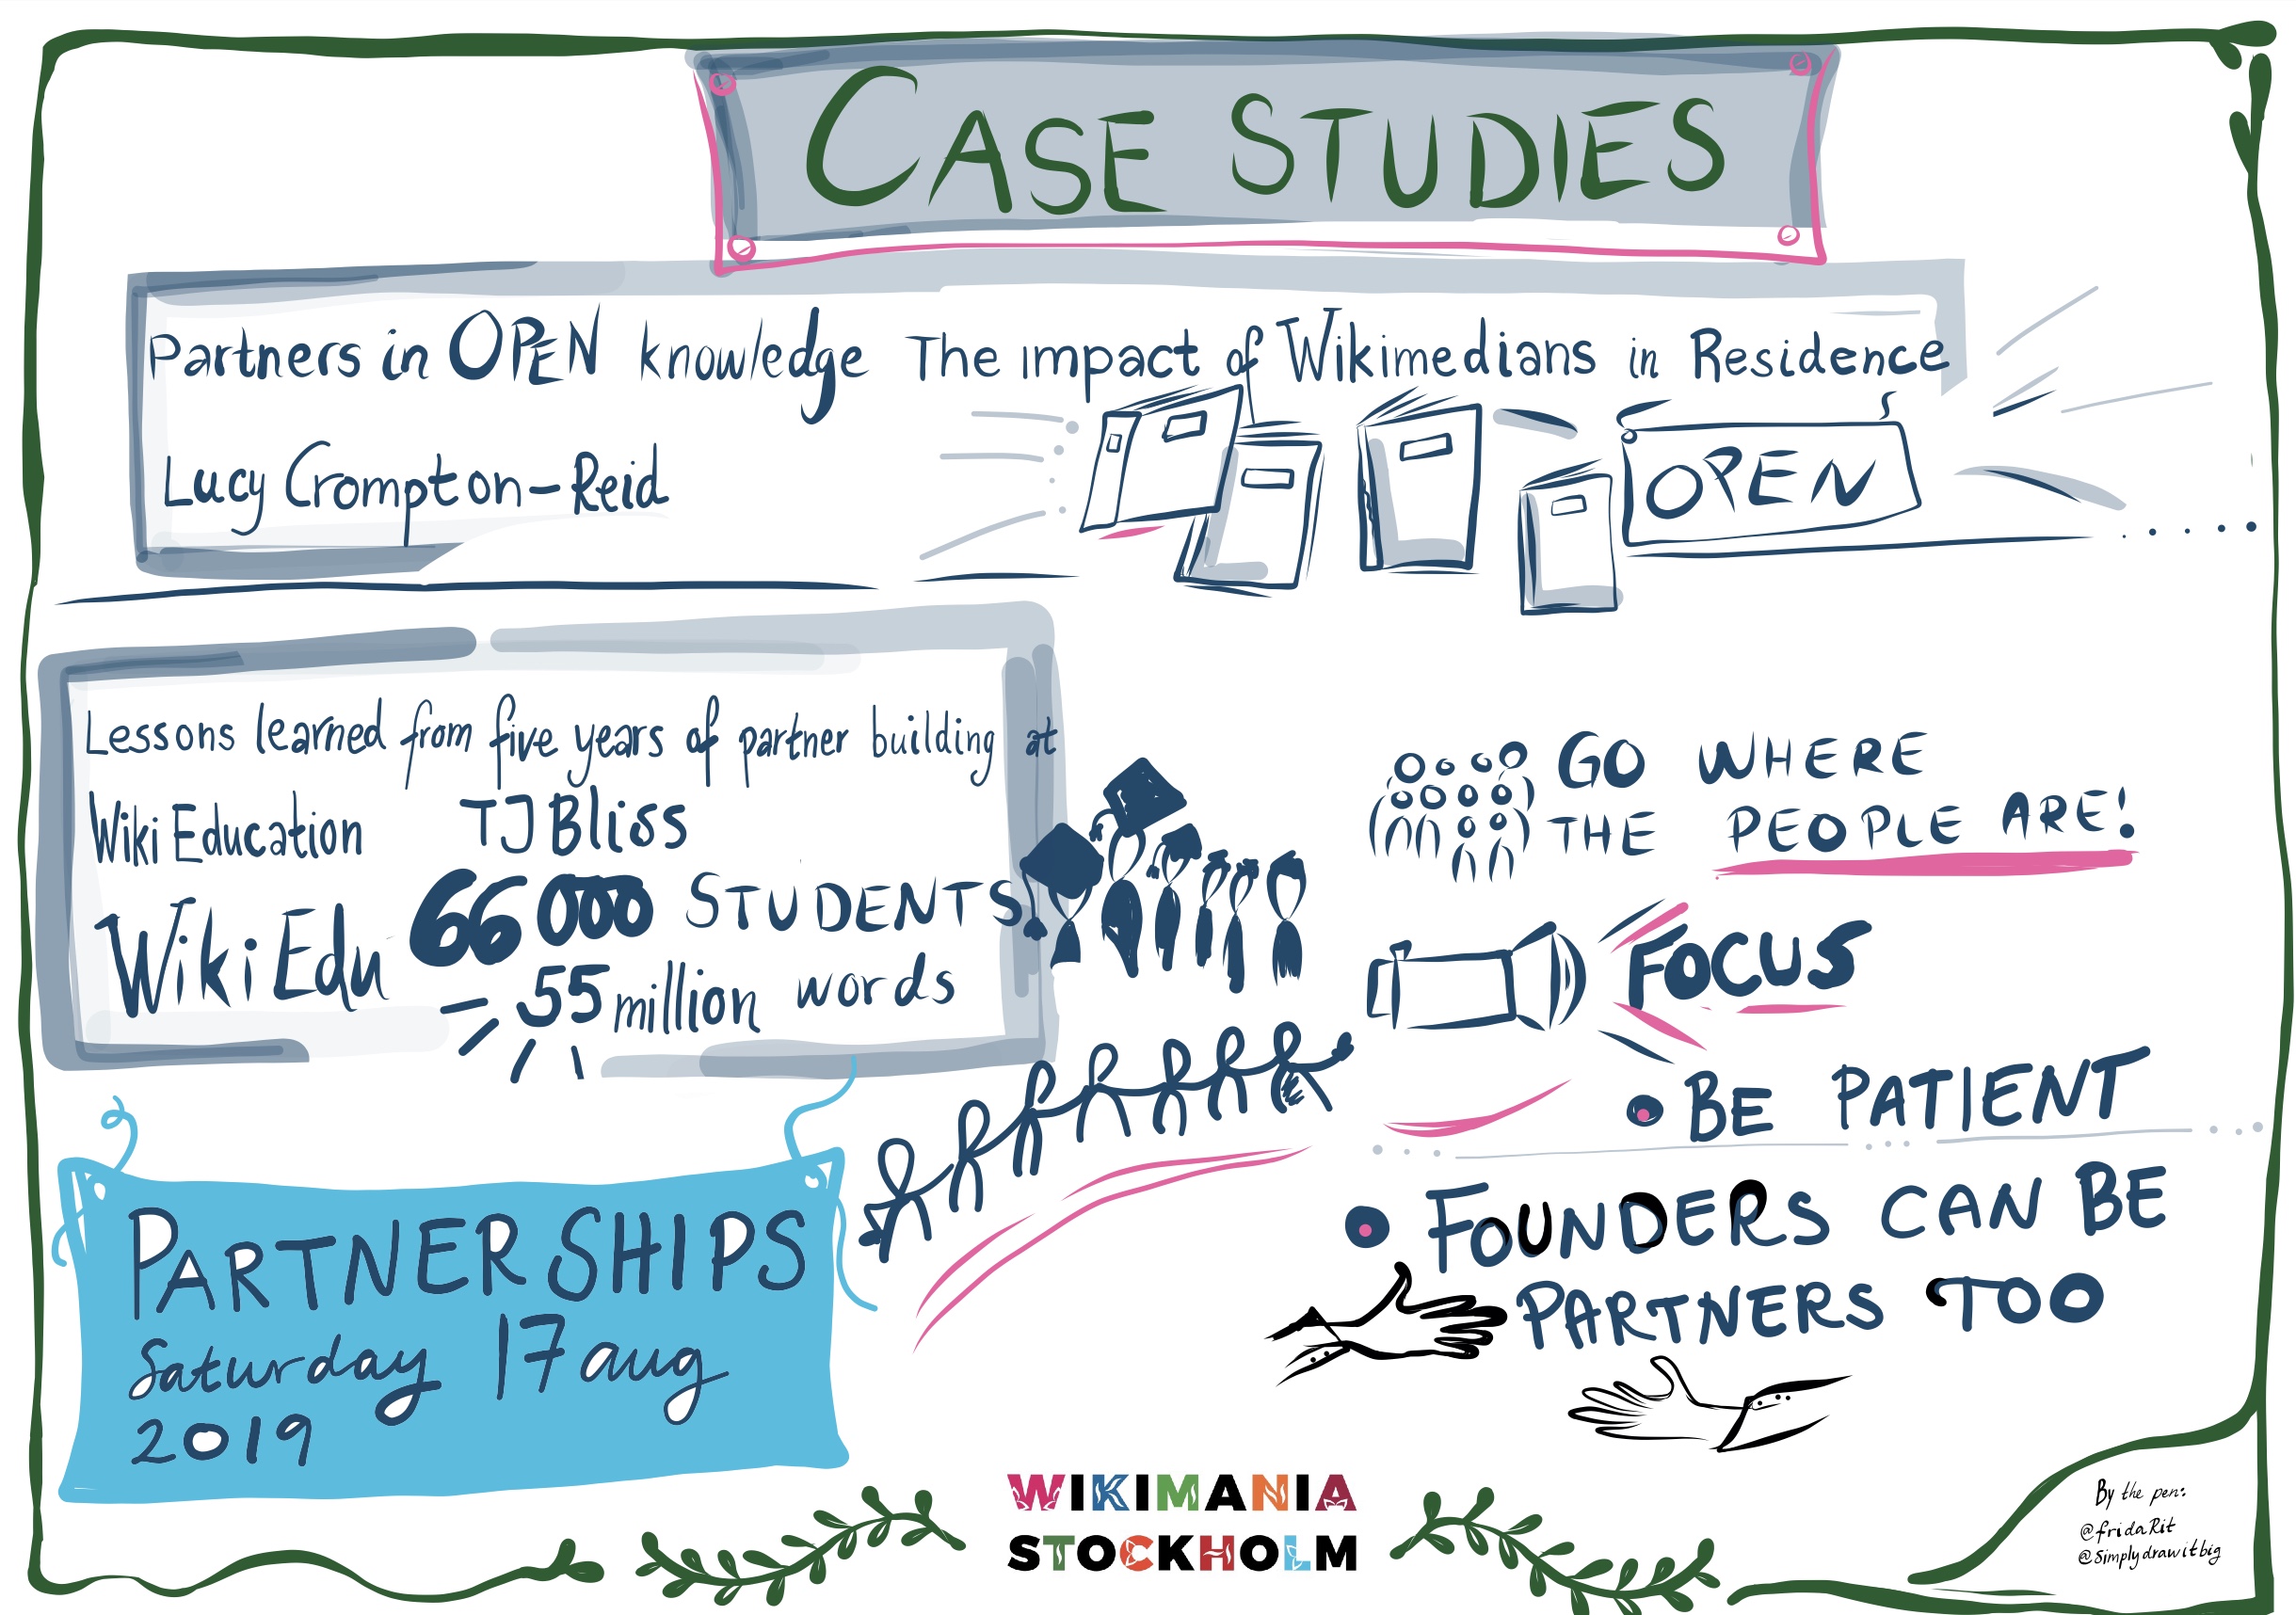 CASE STUDIES
Partners in OPEN knowledge The impact of Wikimedians in Residence
Lucy Crompton-Reid
OPEN
Lessons learned from five years of partner building at
Wiki Education TJ Bliss
Wiki Edu 66 000 STUDENTS
55 million words
GO WHERE
THE PEOPLE ARE!
FOCUS
• BE PATIENT
• FOUNDERS CAN BE
PARTNERS TOO
PARTNERSHIPS
Saturday 17 aug
2019
WIKIMANIA
STOCKHOLM
By the pen:
@fridaRit
@Simplydrawitbig